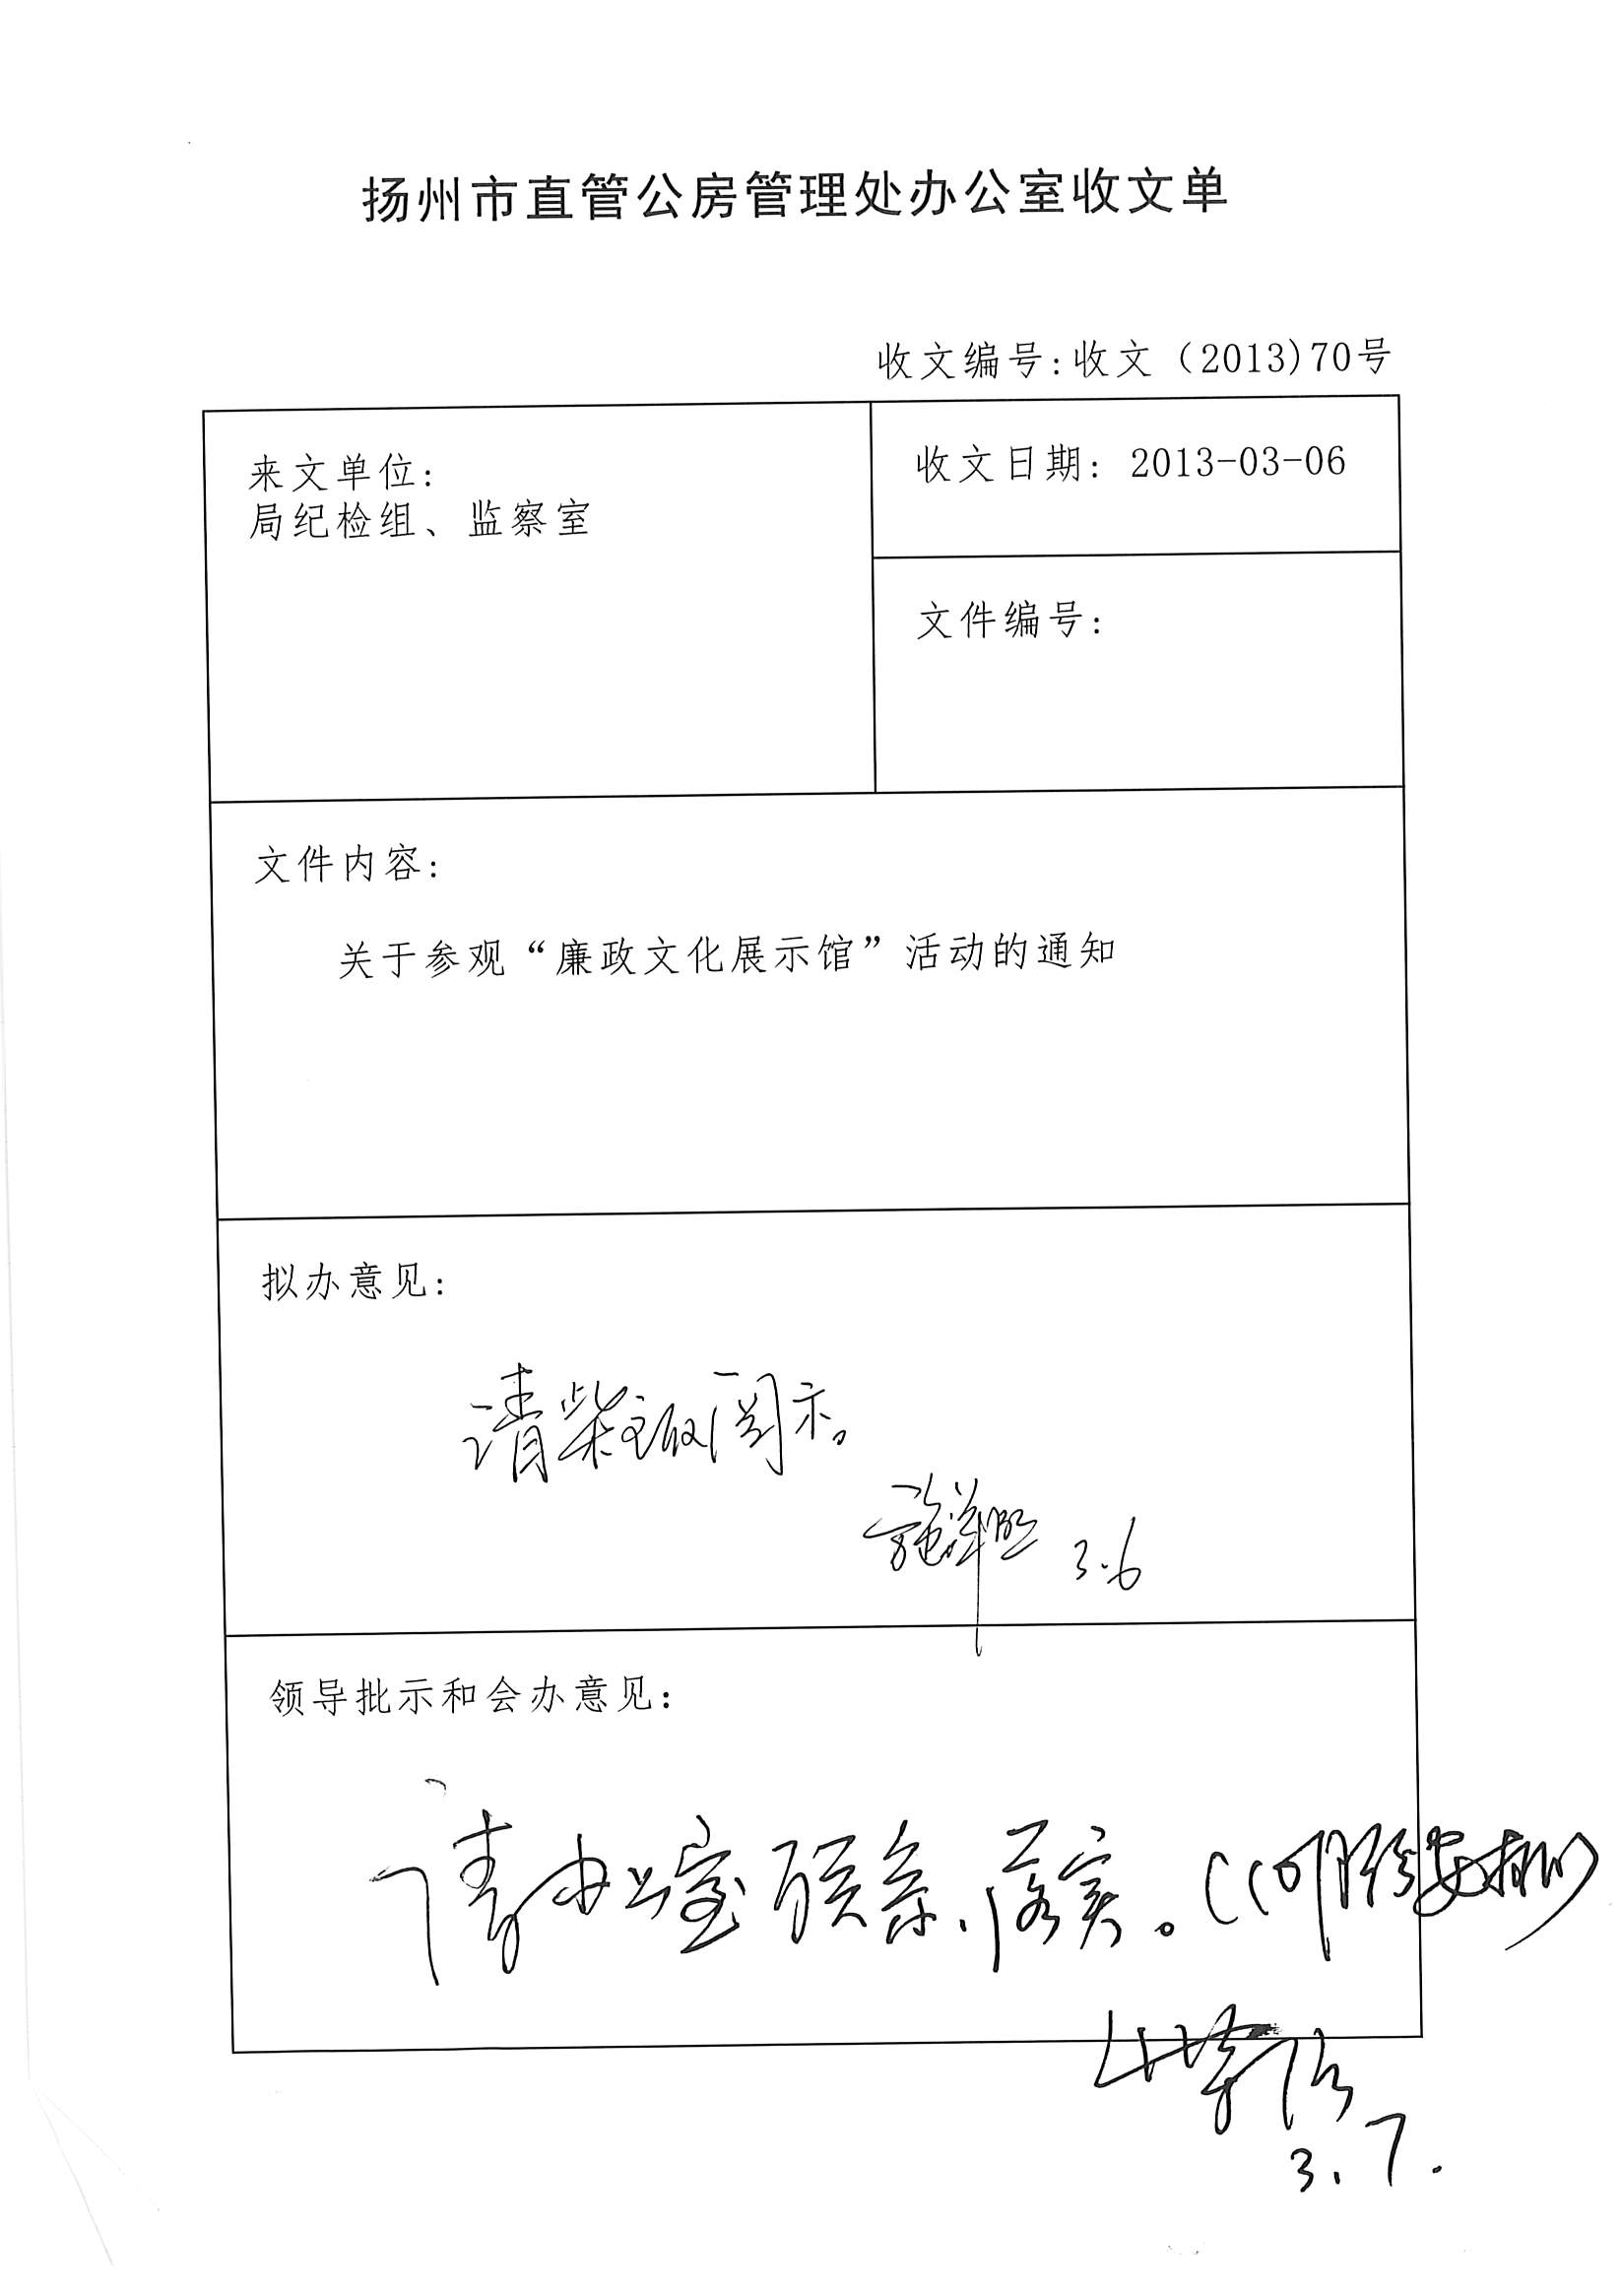 扬州市直管公房管理处办公室收文单
收文编号:收文（2013)70号
来文单位:
局纪检组、监察室
收文日期: 2013-03-06
文件编号:
文件内容:
关于参观“廉政文化展示馆”活动的通知
拟办意见:
请柴主取阅示。
3.6
领导批示和会办意见:
请办公室联系、落实。
3.7.